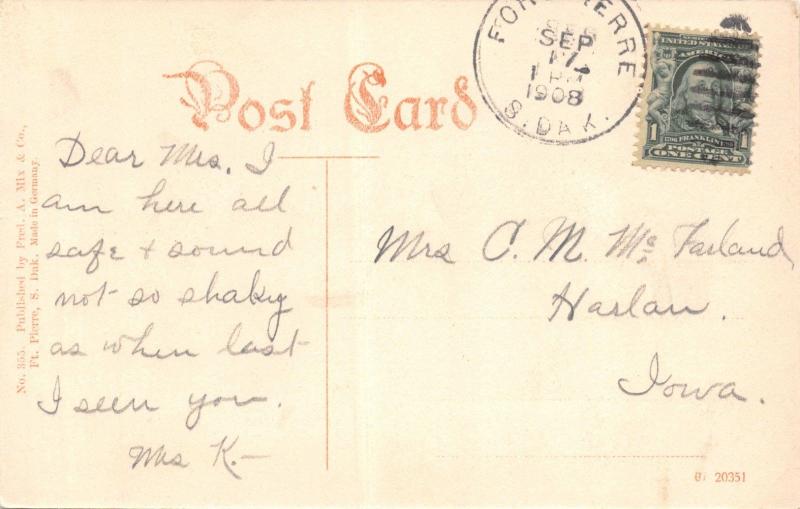 Post Card
FORT PIERRE
SEP
17
1 PM
1908
S. DAK.
UNITED STATES
AMERICA
1
FRANKLIN
1
POSTAGE
ONE CENT
Dear Mrs. I
am here all
safe + sound
not so shaky
as when last
I seen you.
Mrs K.—
Mrs C. M. McFarland,
Harlan.
Iowa.
No. 355. Published by Fred. A. Mix & Co.,
Ft. Pierre, S. Dak. Made in Germany.
20351